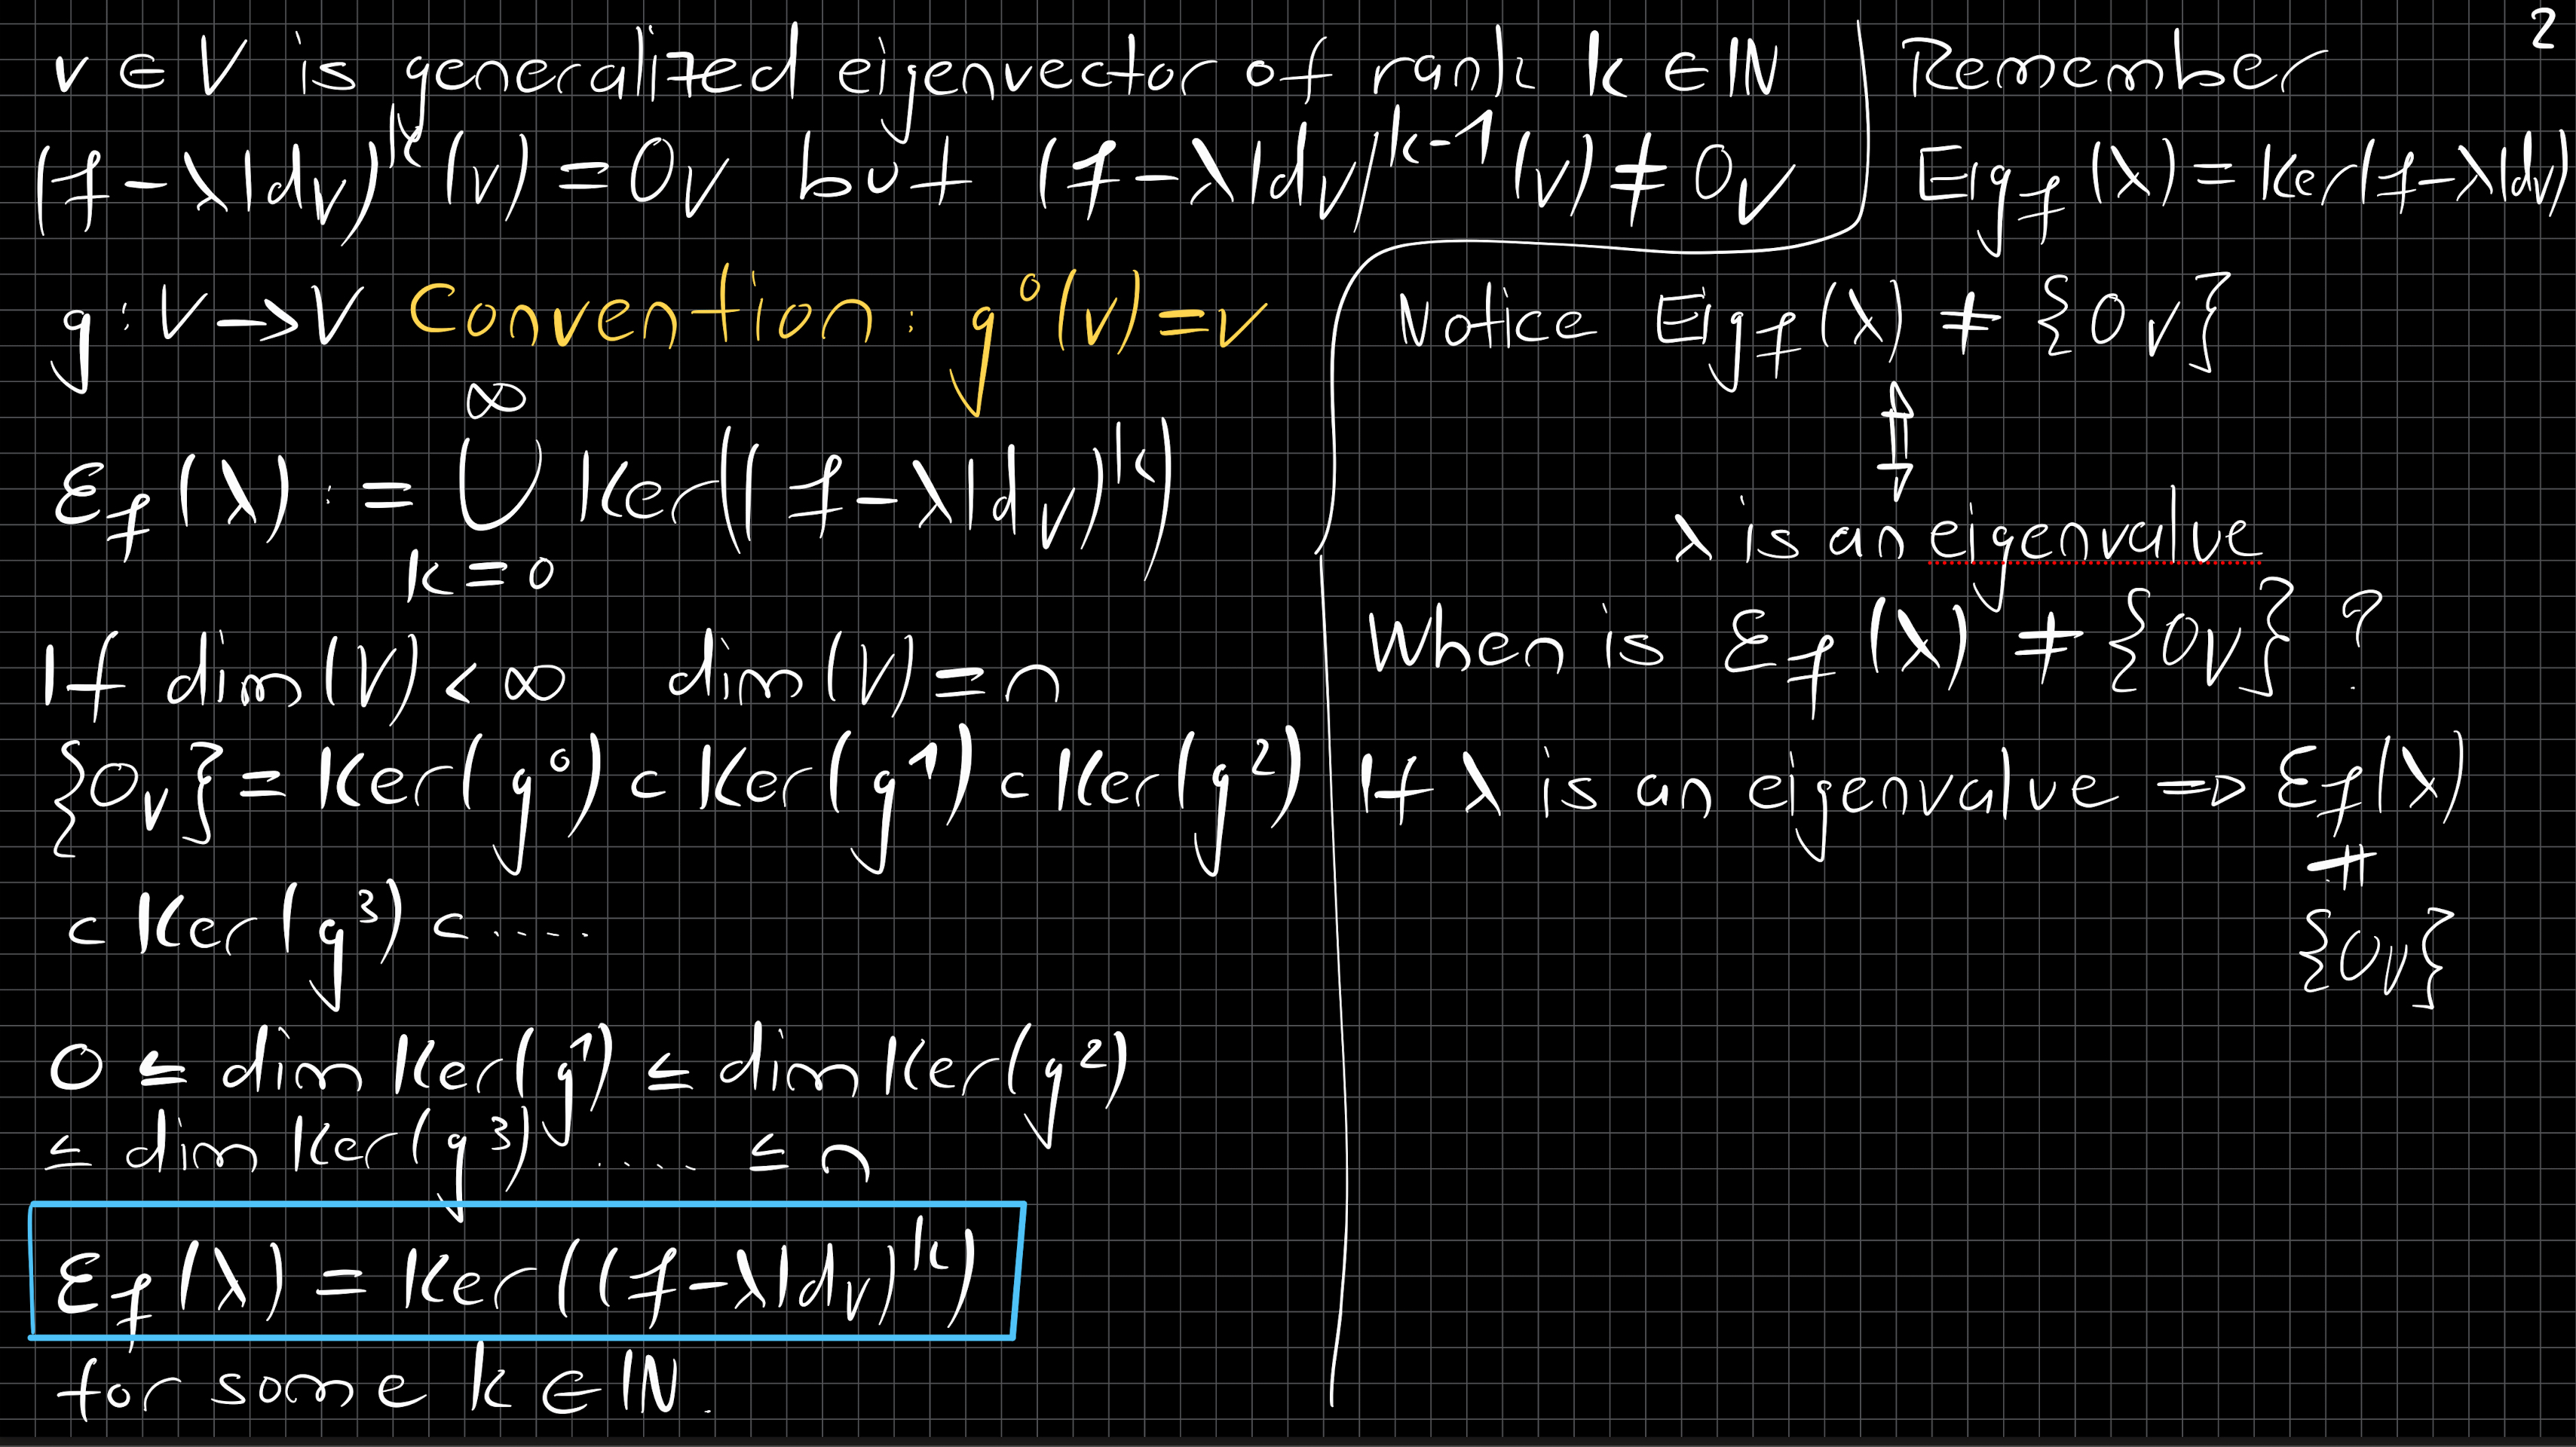 2
v ∈ V is generalized eigenvector of rank k ∈ ℕ
(f - λ Id_V)^k (v) = 0_V but (f - λ Id_V)^{k-1} (v) ≠ 0_V
g : V → V Convention : g^0 (v) = v
ℰ_f (λ) := ⋃_{k=0}^{∞} Ker((f - λ Id_V)^k)
If dim(V) < ∞ dim(V) = n
{0_V} = Ker(g^0) ⊂ Ker(g^1) ⊂ Ker(g^2)
⊂ Ker(g^3) ⊂ .....
0 ≤ dim Ker(g^1) ≤ dim Ker(g^2)
≤ dim Ker(g^3) .... ≤ n
ℰ_f (λ) = Ker((f - λ Id_V)^k)
for some k ∈ ℕ.
Remember
Eig_f (λ) = Ker(f - λ Id_V)
Notice Eig_f (λ) ≠ {0_V}
⇕
λ is an eigenvalue
When is ℰ_f (λ) ≠ {0_V} ?
If λ is an eigenvalue ⇒ ℰ_f (λ)
≠
{0_V}